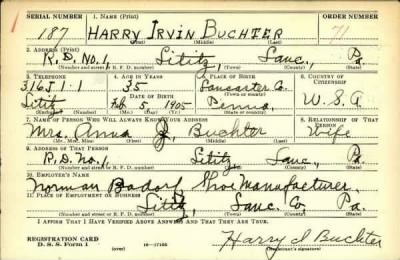 SERIAL NUMBER 1. NAME (Print) ORDER NUMBER
187 HARRY IRVIN BUCHTER 71
(First) (Middle) (Last)
2. ADDRESS (Print)
R.D. No. 1, Lititz, Lanc., Pa.
(Number and street or R. F. D. number) (Town) (County) (State)
3. TELEPHONE 4. AGE IN YEARS 5. PLACE OF BIRTH 6. COUNTRY OF CITIZENSHIP
316J11 35 Lancaster Co.
DATE OF BIRTH
Lititz Feb. 5, 1905 Penna. U.S.A.
(Exchange) (Number) (Mo.) (Day) (Yr.) (State or country)
7. NAME OF PERSON WHO WILL ALWAYS KNOW YOUR ADDRESS 8. RELATIONSHIP OF THAT PERSON
Mrs. Anna J. Buchter Wife
(Mr., Mrs., Miss) (First) (Middle) (Last)
9. ADDRESS OF THAT PERSON
R.D. No. 1, Lititz, Lanc., Pa.
(Number and street or R. F. D. number) (Town) (County) (State)
10. EMPLOYER'S NAME
Norman Badorf, Shoe Manufacturer,
11. PLACE OF EMPLOYMENT OR BUSINESS
Lititz, Lanc. Co., Pa.
(Number and street or R. F. D. number) (Town) (County) (State)
I AFFIRM THAT I HAVE VERIFIED ABOVE ANSWERS AND THAT THEY ARE TRUE.
REGISTRATION CARD
D. S. S. Form 1 (over) 16-17105 Harry I Buchter
(Registrant's signature)